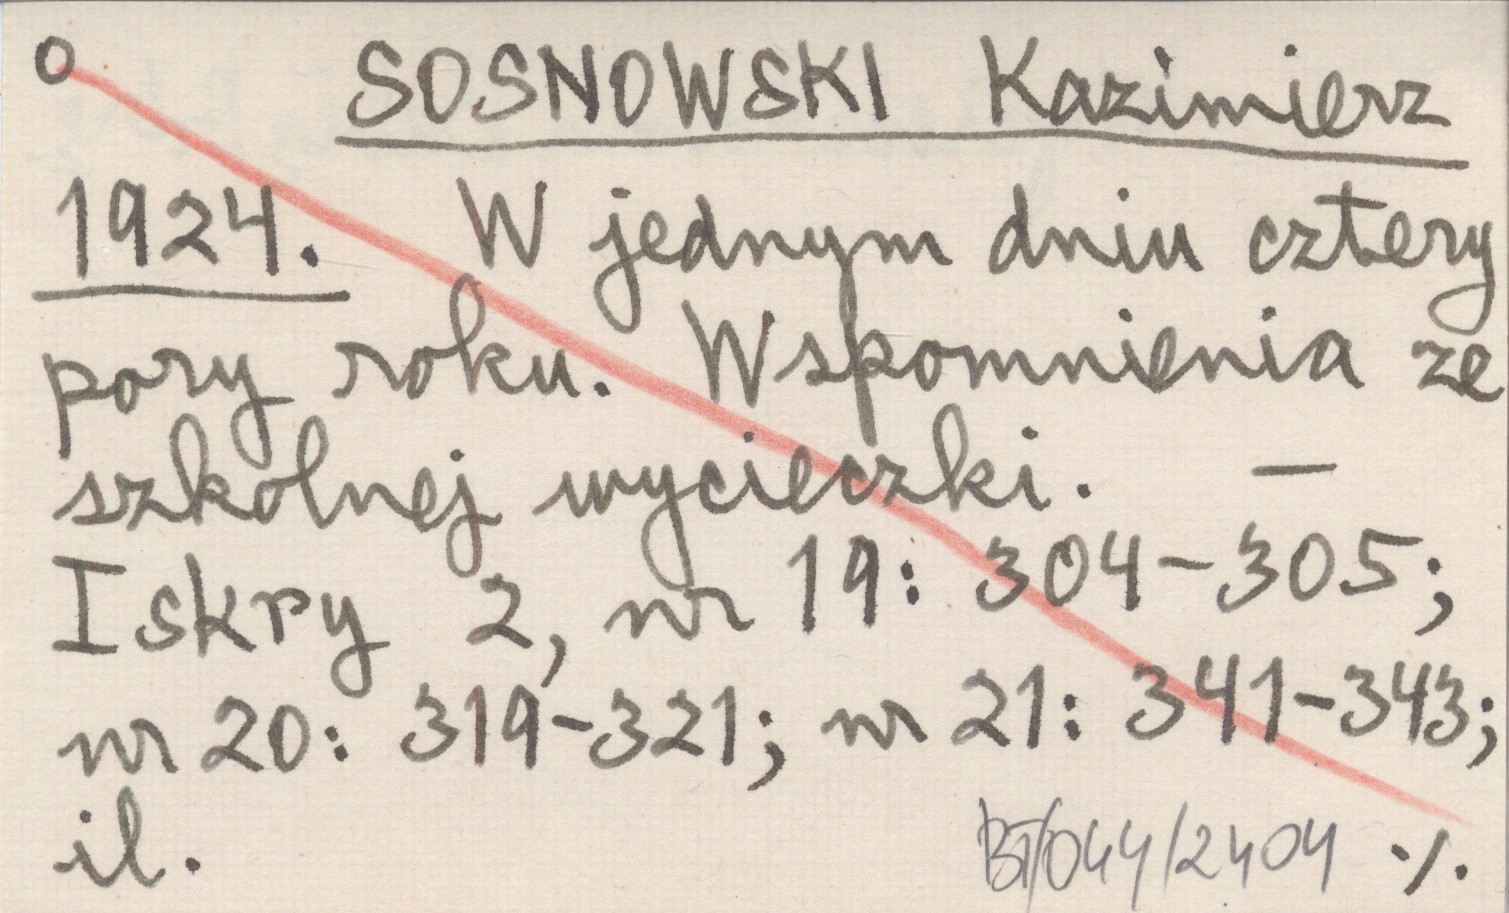 o SOSNOWSKI Kazimierz
1924. W jednym dniu cztery
pory roku. Wspomnienia ze
szkolnej wycieczki. —
Iskry 2, nr 19: 304-305;
nr 20: 319-321; nr 21: 341-343;
il. BT/044/2404 ·/.